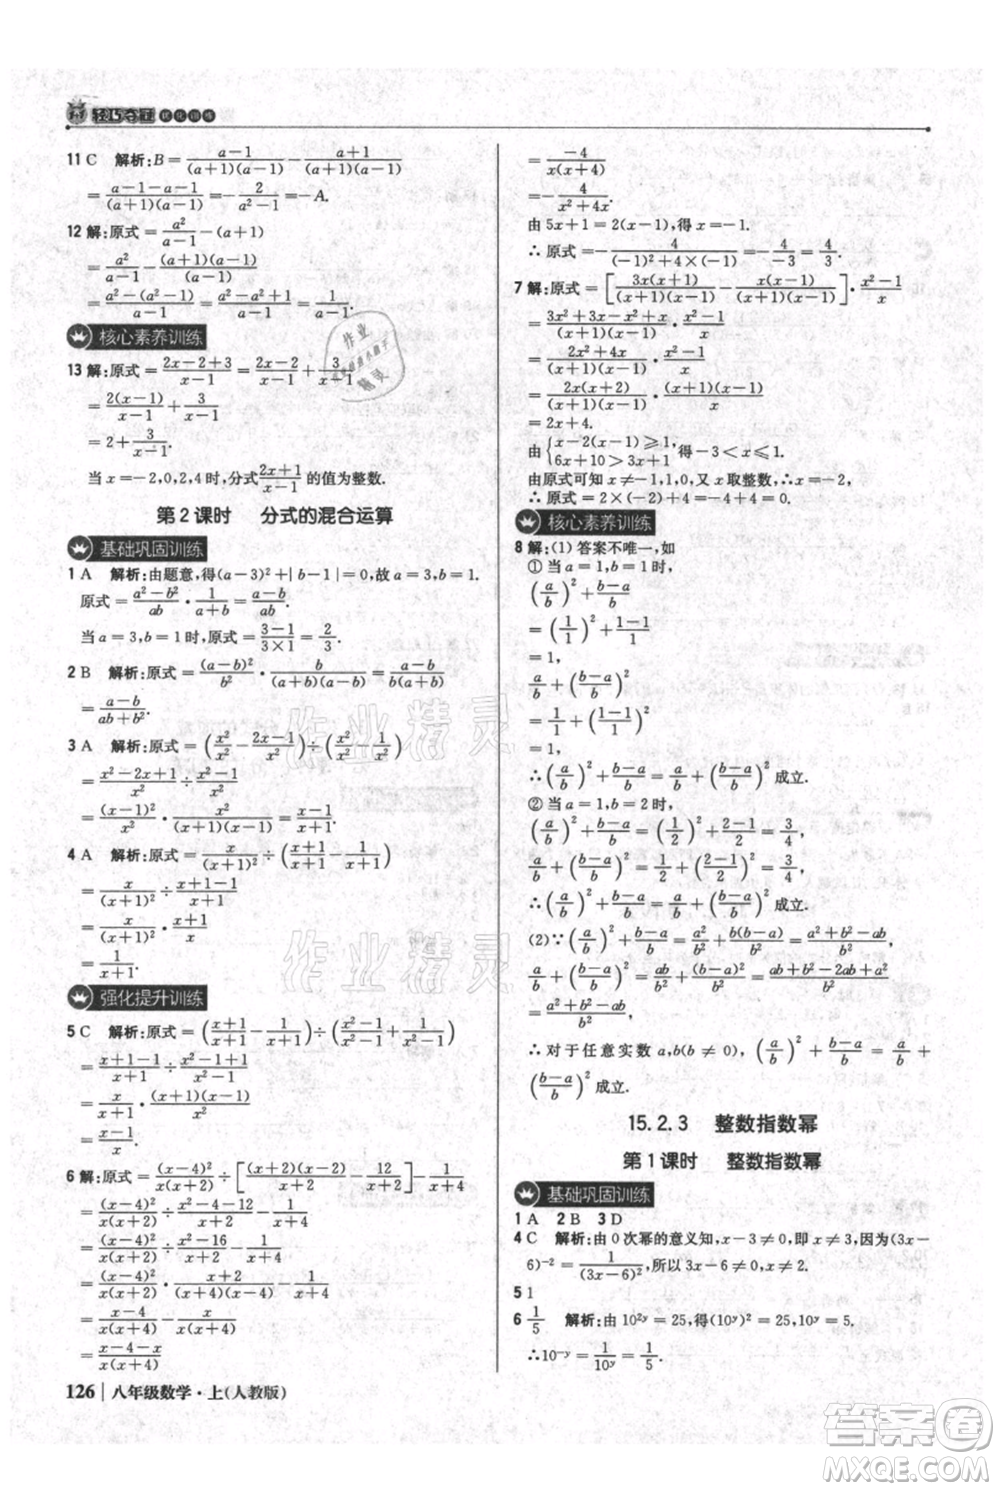 轻巧夺冠 优化训练
11 C 解析:B = \frac{a-1}{(a+1)(a-1)} - \frac{a+1}{(a+1)(a-1)}
= \frac{a-1-a-1}{(a+1)(a-1)} = -\frac{2}{a^2-1} = -A.
12 解:原式 = \frac{a^2}{a-1} - (a+1)
= \frac{a^2}{a-1} - \frac{(a+1)(a-1)}{a-1}
= \frac{a^2-(a^2-1)}{a-1} = \frac{1}{a-1}.
核心素养训练
13 解:原式 = \frac{2x-2+3}{x-1} = \frac{2x-2}{x-1} + \frac{3}{x-1}
= \frac{2(x-1)}{x-1} + \frac{3}{x-1}
= 2 + \frac{3}{x-1}.
当 x = -2,0,2,4 时,分式\frac{2x+1}{x-1}的值为整数.
第 2 课时 分式的混合运算
基础巩固训练
1 A 解析:由题意,得(a-3)^2 + |b-1| = 0,故 a = 3, b = 1.
原式 = \frac{a^2-b^2}{ab} · \frac{1}{a+b} = \frac{a-b}{ab}.
当 a = 3, b = 1 时,原式 = \frac{3-1}{3×1} = \frac{2}{3}.
2 B 解析:原式 = \frac{(a-b)^2}{b^2} · \frac{b}{(a+b)(a-b)}
= \frac{a-b}{ab+b^2}.
3 A 解析:原式 = (\frac{x^2}{x^2} - \frac{2x-1}{x^2}) ÷ (\frac{x^2-1}{x})
= \frac{x^2-2x+1}{x^2} ÷ \frac{x^2-1}{x}
= \frac{(x-1)^2}{x^2} · \frac{x}{(x-1)(x+1)} = \frac{x-1}{x(x+1)}.
4 A 解析:原式 = \frac{x}{(x+1)^2} ÷ (\frac{x+1}{x+1} - \frac{1}{x+1})
= \frac{x}{(x+1)^2} ÷ \frac{x+1-1}{x+1}
= \frac{x}{(x+1)^2} · \frac{x+1}{x}
= \frac{1}{x+1}.
强化提升训练
5 C 解析:原式 = (\frac{x+1}{x+1} - \frac{1}{x+1}) ÷ (\frac{x^2-1}{x+1} + \frac{1}{x+1})
= \frac{x+1-1}{x+1} ÷ \frac{x^2}{x^2-1}
= \frac{x}{x+1} · \frac{(x+1)(x-1)}{x^2}
= \frac{x-1}{x}.
6 解:原式 = \frac{(x-4)^2}{x(x+2)} ÷ [\frac{(x-2)(x+2)}{x+2} - \frac{12}{x+2}] - \frac{x}{x+4}
= \frac{(x-4)^2}{x(x+2)} ÷ \frac{x^2-4-12}{x+2} - \frac{x}{x+4}
= \frac{(x-4)^2}{x(x+2)} · \frac{x+2}{(x+4)(x-4)} - \frac{x}{x+4}
= \frac{x-4}{x(x+4)} - \frac{x}{x+4}
= \frac{x-4-x}{x(x+4)}
= \frac{-4}{x(x+4)}
= -\frac{4}{x^2+4x}.
由 5x+1 = 2(x-1),得 x = -1.
∴ 原式 = -\frac{4}{(-1)^2+4×(-1)} = -\frac{4}{-3} = \frac{4}{3}.
7 解:原式 = [\frac{3x(x+1)}{(x-1)(x+1)} - \frac{x(x-1)}{(x+1)(x-1)}] · \frac{x^2-1}{x}
= \frac{3x^2+3x-x^2+x}{(x-1)(x+1)} · \frac{x^2-1}{x}
= \frac{2x^2+4x}{(x+1)(x-1)} · \frac{x^2-1}{x}
= \frac{2x(x+2)}{(x+1)(x-1)} · \frac{(x+1)(x-1)}{x}
= 2x+4.
由 {x-2(x-1) ≥ 1, 6x+10 > 3x+1,得 -3 < x ≤ 1.
由原式可知 x ≠ -1,1,0,又 x 取整数,故 x = -2.
∴ 原式 = 2×(-2)+4 = -4+4 = 0.
核心素养训练
8 解:(1) 答案不唯一,如
① 当 a = 1, b = 1 时,
(\frac{a}{b})^2 + \frac{b-a}{b}
= (\frac{1}{1})^2 + \frac{1-1}{1}
= 1,
\frac{a}{b} + (\frac{b-a}{b})^2
= \frac{1}{1} + (\frac{1-1}{1})^2
= 1,
∴ (\frac{a}{b})^2 + \frac{b-a}{b} = \frac{a}{b} + (\frac{b-a}{b})^2 成立.
② 当 a = 1, b = 2 时,
(\frac{a}{b})^2 + \frac{b-a}{b} = (\frac{1}{2})^2 + \frac{2-1}{2} = \frac{3}{4},
\frac{a}{b} + (\frac{b-a}{b})^2 = \frac{1}{2} + (\frac{2-1}{2})^2 = \frac{3}{4},
∴ (\frac{a}{b})^2 + \frac{b-a}{b} = \frac{a}{b} + (\frac{b-a}{b})^2 成立.
(2)∵ (\frac{a}{b})^2 + \frac{b-a}{b} = \frac{a^2}{b^2} + \frac{b(b-a)}{b^2} = \frac{a^2+b^2-ab}{b^2},
\frac{a}{b} + (\frac{b-a}{b})^2 = \frac{ab}{b^2} + \frac{(b-a)^2}{b^2} = \frac{ab+b^2-2ab+a^2}{b^2}
= \frac{a^2+b^2-ab}{b^2},
∴ 对于任意实数 a,b(b ≠ 0),(\frac{a}{b})^2 + \frac{b-a}{b} = \frac{a}{b} +
(\frac{b-a}{b})^2 成立.
15.2.3 整数指数幂
第 1 课时 整数指数幂
基础巩固训练
1 A 2 B 3 D
4 C 解析:由 0 次幂的意义知,x-3 ≠ 0,即 x ≠ 3,又(3x-
6)^{-2} = \frac{1}{(3x-6)^2},所以 3x-6 ≠ 0,即 x ≠ 2.
5 1
6 \frac{1}{5} 解析:由 10^{2y} = 25,得(10^y)^2 = 25,10^y = 5,
∴10^{-y} = \frac{1}{10^y} = \frac{1}{5}.
126 八年级数学·上(人教版)
作业精灵
作业精灵
答案圈
MXQE.COM